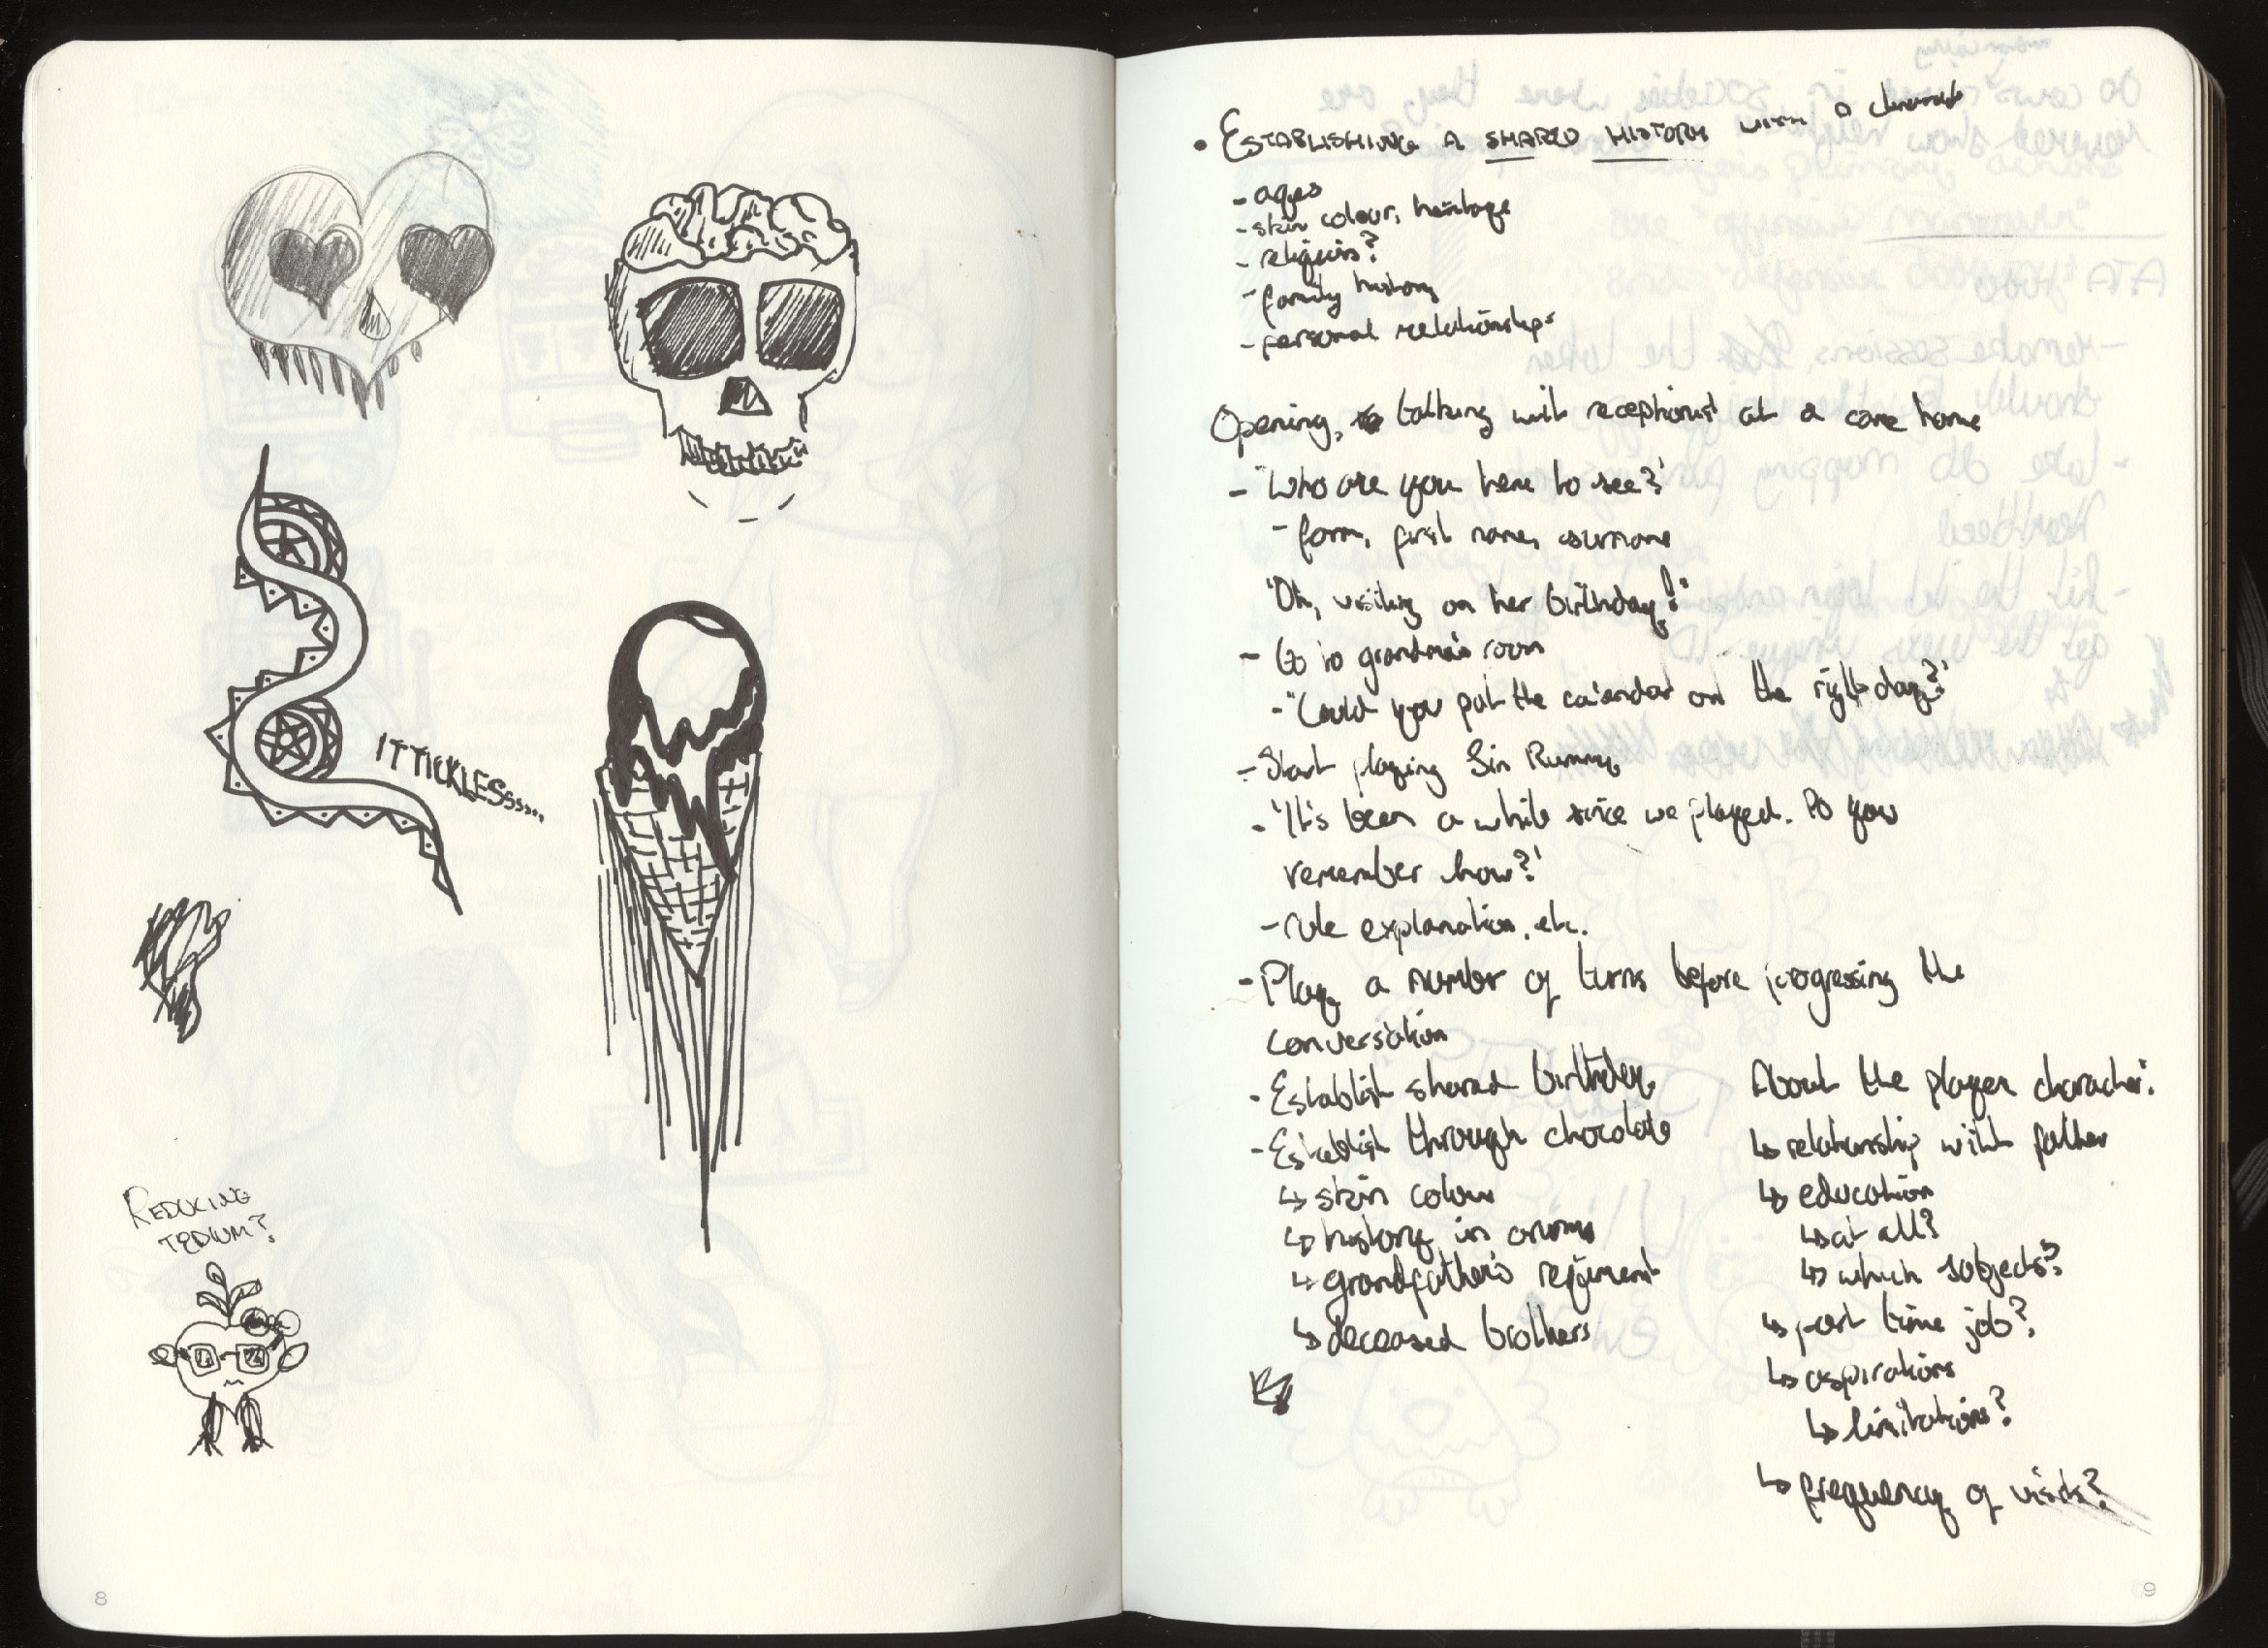 IT TICKLESsss....
REDUCING
TEDIUM?
8
• ESTABLISHING A SHARED HISTORY WITH a character
- ages
- skin colour, heritage
- religious?
- family history
- personal relationships
Opening, talking with receptionist at a care home
- 'Who are you here to see?'
- form, first name, surname
'Oh, visiting on her birthday!'
- Go to grandma's room
- 'Could you put the calendar on the right day?'
- Start playing Gin Rummy
- 'It's been a while since we played. Do you
remember how?'
- rule explanation, etc.
- Play a number of turns before progressing the
conversation
- Establish shared birthday
- Establish through chocolate
↳ skin colour
↳ history in army
↳ grandfather's regiment
↳ deceased brothers
About the player character:
↳ relationship with father
↳ education
↳ at all?
↳ which subjects?
↳ part time job?
↳ aspirations
↳ limitations?
↳ frequency of visits?
9